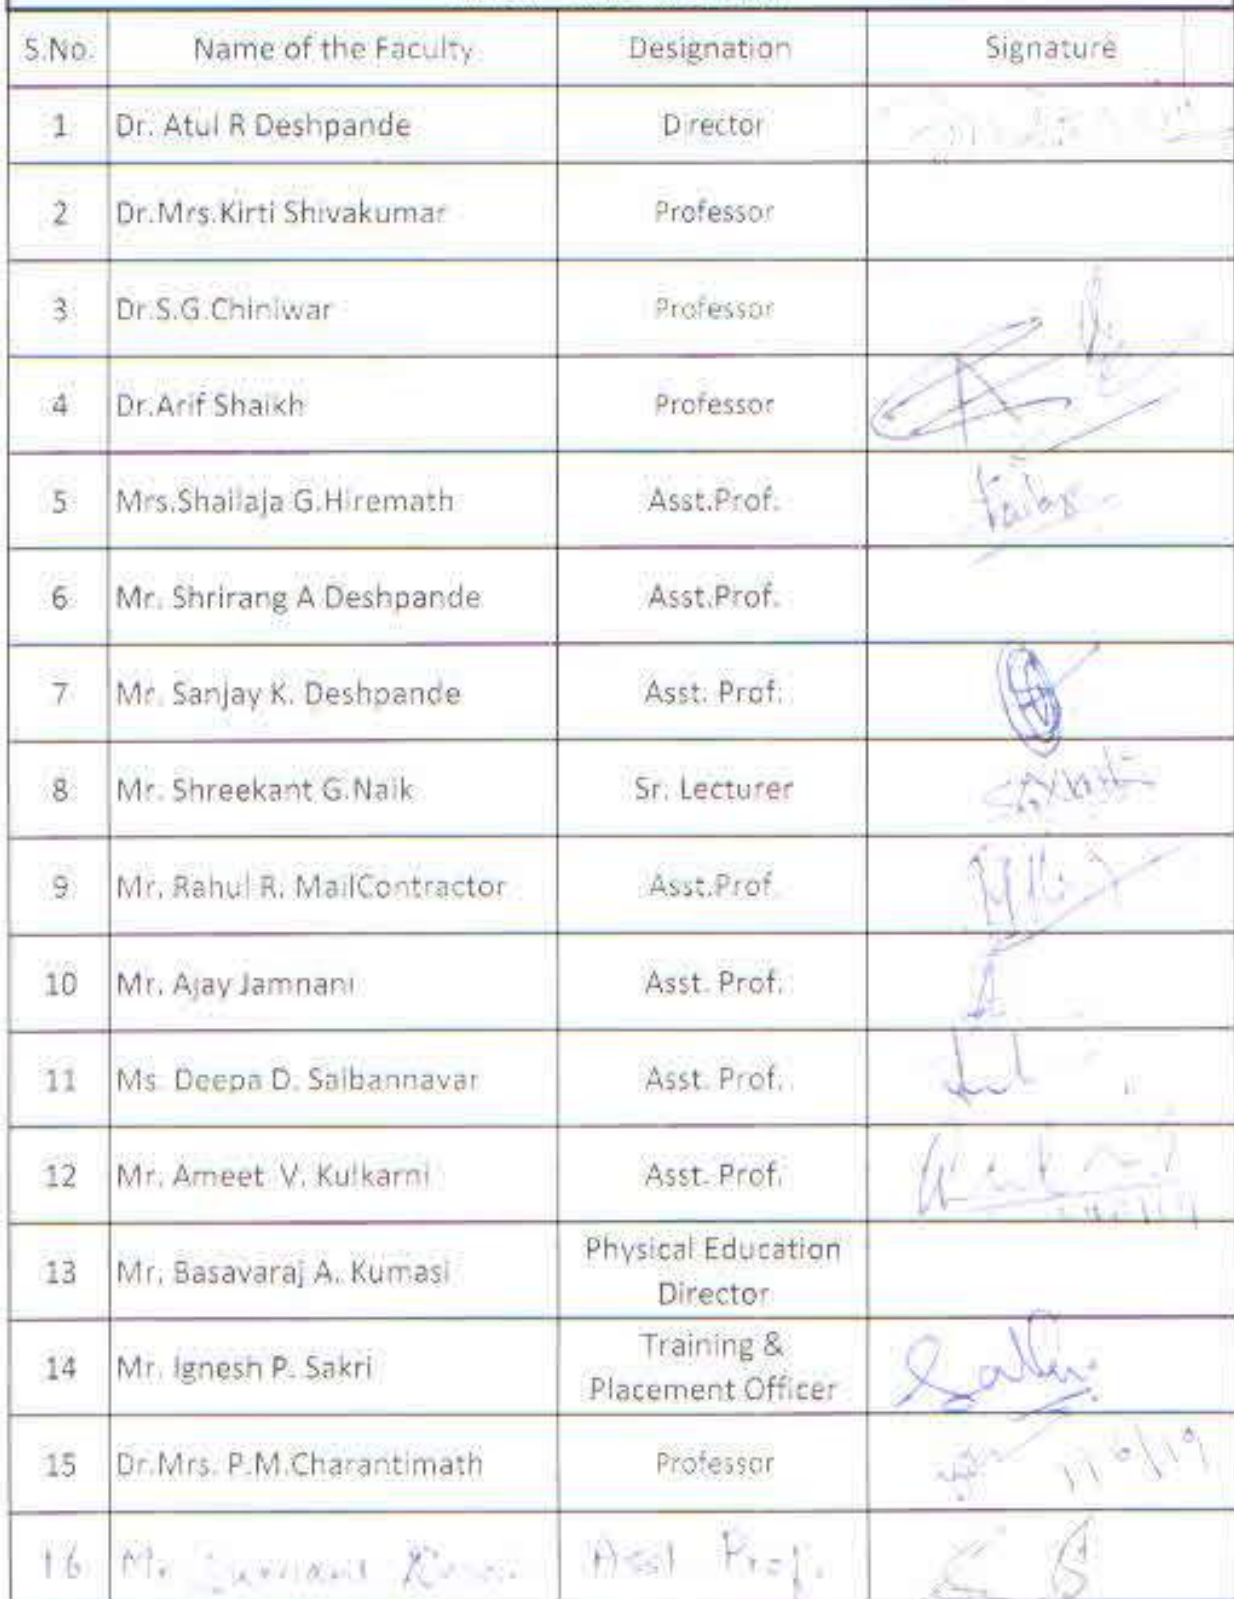 S.No. Name of the Faculty Designation Signature
1 Dr. Atul R Deshpande Director
2 Dr.Mrs.Kirti Shivakumar Professor
3 Dr.S.G.Chiniwar Professor
4 Dr.Arif Shaikh Professor
5 Mrs.Shailaja G.Hiremath Asst.Prof.
6 Mr. Shrirang A Deshpande Asst.Prof.
7 Mr. Sanjay K. Deshpande Asst. Prof.
8 Mr. Shreekant G.Naik Sr. Lecturer
9 Mr. Rahul R. MailContractor Asst.Prof.
10 Mr. Ajay Jamnani Asst. Prof.
11 Ms. Deepa D. Saibannavar Asst. Prof.
12 Mr. Ameet V. Kulkarni Asst. Prof.
13 Mr. Basavaraj A. Kumasi Physical Education
Director
14 Mr. Ignesh P. Sakri Training &
Placement Officer
15 Dr.Mrs. P.M.Charantimath Professor
16 Mr. Asst Prof.